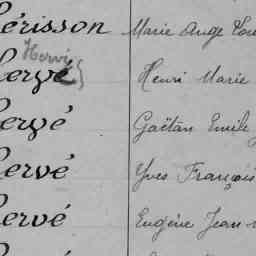 érisson Marie Ange
Hervé
ervé Henri Marie
ervé Gaëtan Emile
ervé Yves François
ervé Eugène Jean